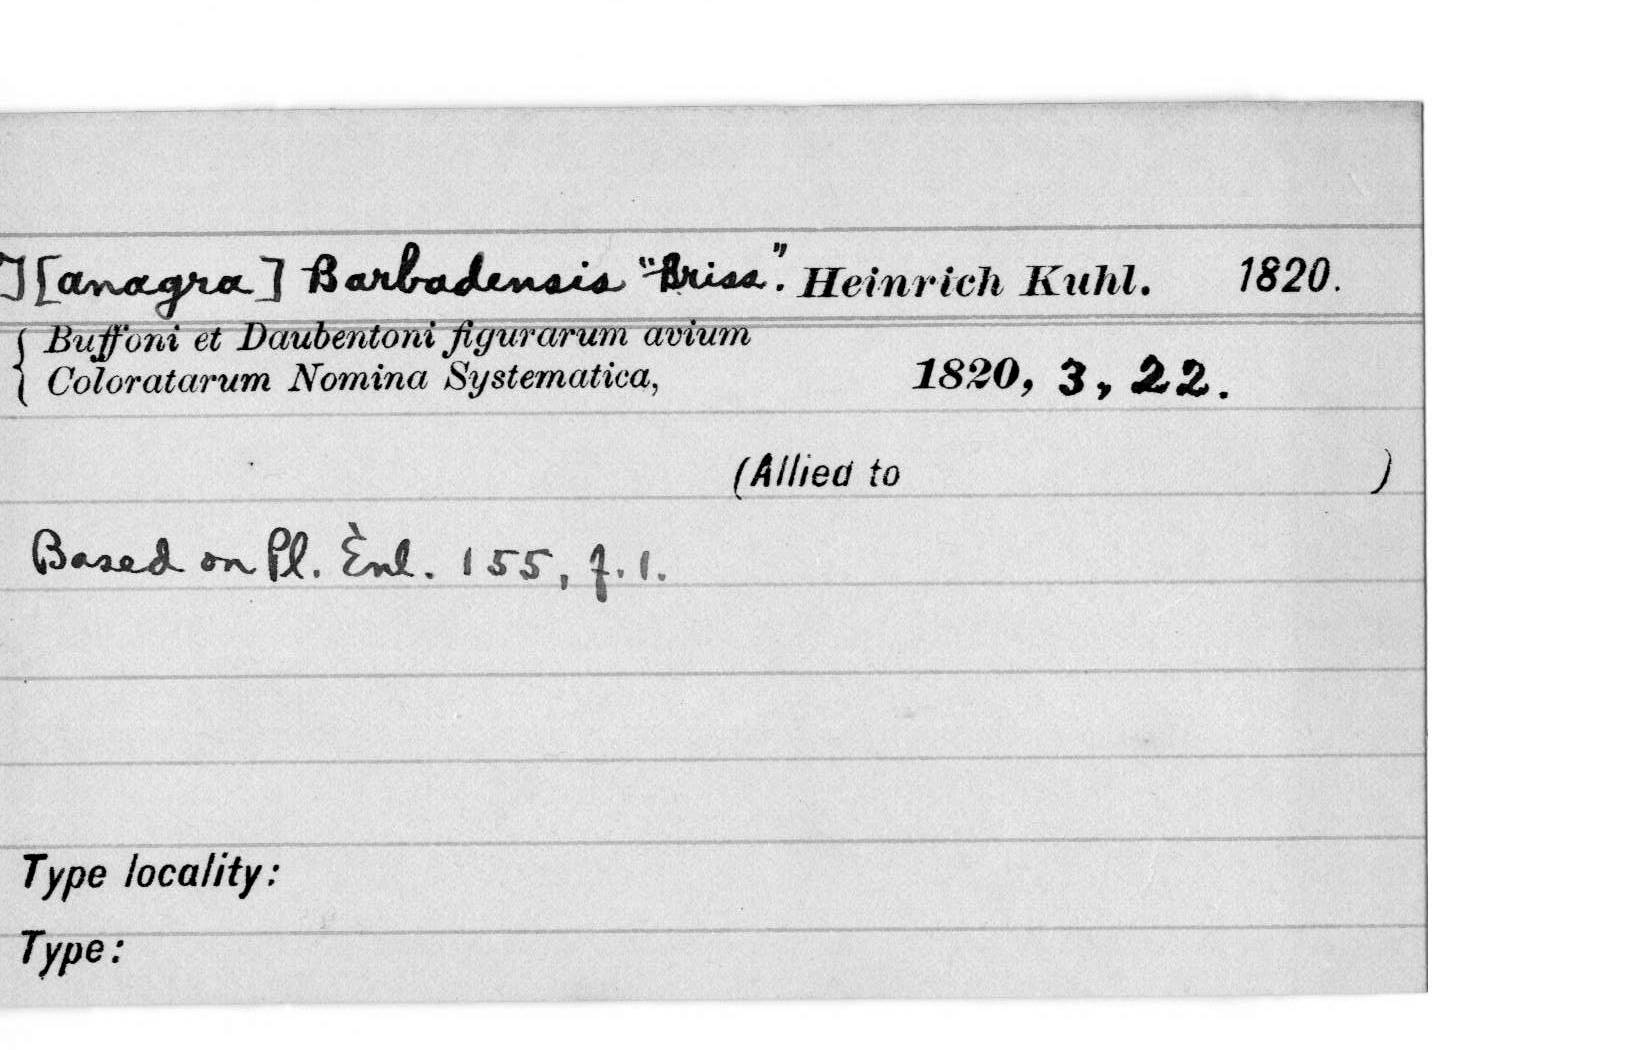 T[anagra] Barbadensis "Briss". Heinrich Kuhl. 1820.
Buffoni et Daubentoni figurarum avium
Coloratarum Nomina Systematica, 1820, 3, 22.
(Allied to )
Based on Pl. Ènl. 155, f. 1.
Type locality:
Type: